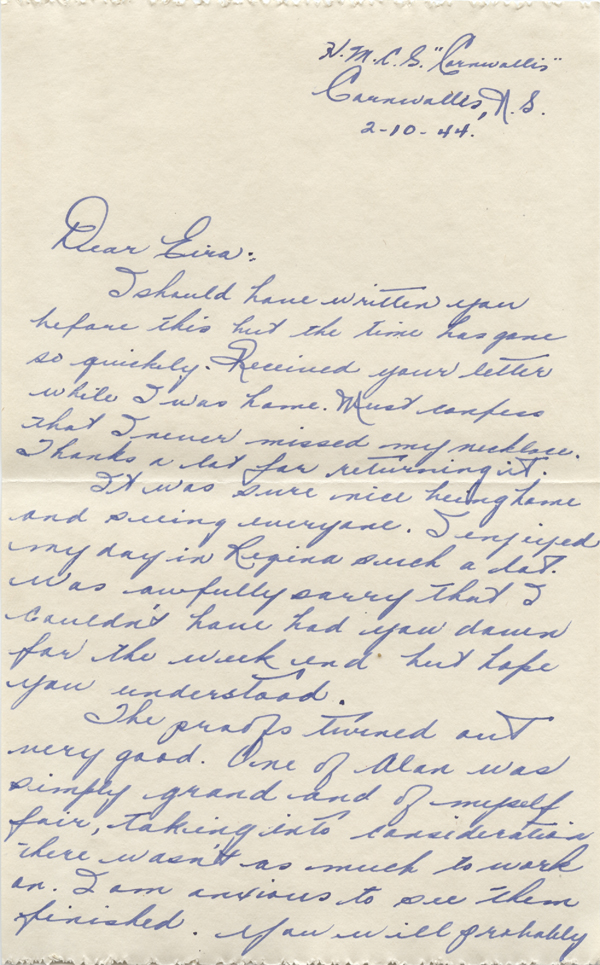 H.M.C.S. "Cornwallis"
Cornwallis, N.S.
2-10-44.
Dear Eira:
I should have written you
before this but the time has gone
so quickly. Received your letter
while I was home. Must confess
that I never missed my necklace.
Thanks a lot for returning it.
It was sure nice being home
and seeing everyone. I enjoyed
my day in Regina such a lot.
Was awfully sorry that I
couldn't have had you down
for the week end but hope
you understood.
The proofs turned out
very good. One of Alan was
simply grand and of myself
fair, taking into consideration
there wasn't as much to work
on. I am anxious to see them
finished. You will probably